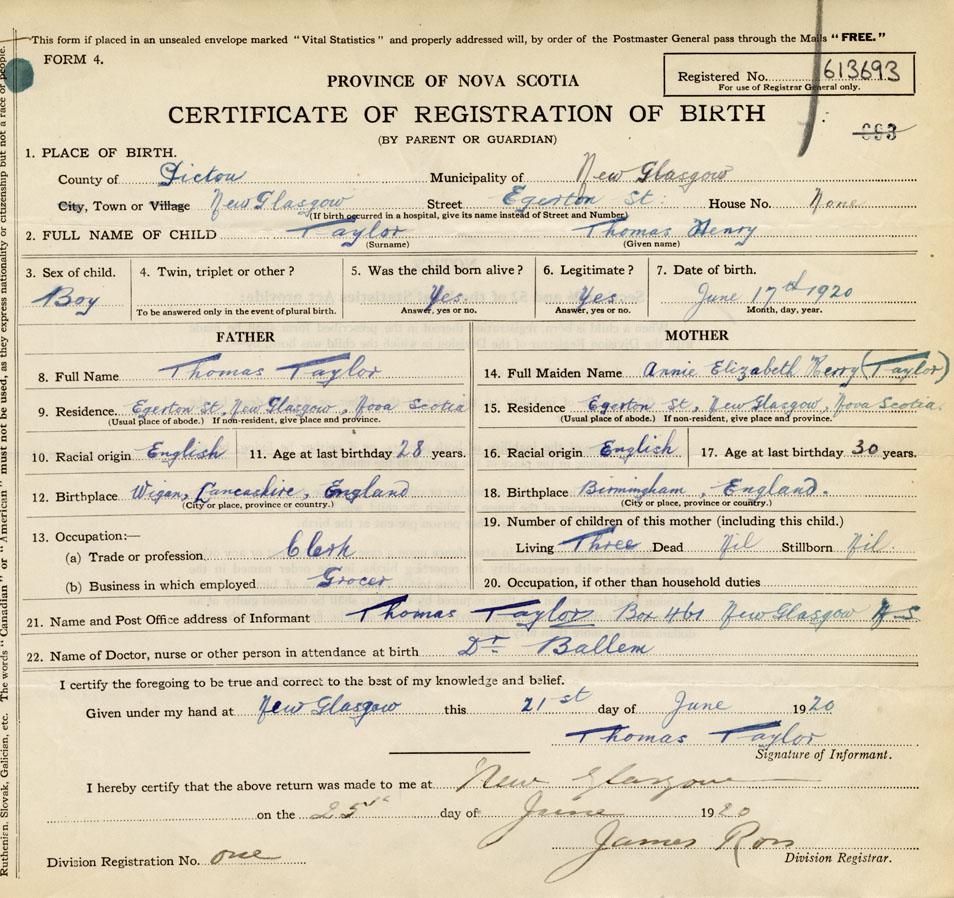 This form if placed in an unsealed envelope marked "Vital Statistics" and properly addressed will, by order of the Postmaster General pass through the Mails "FREE."
FORM 4.
PROVINCE OF NOVA SCOTIA
Registered No. 613693
For use of Registrar General only.
CERTIFICATE OF REGISTRATION OF BIRTH
(BY PARENT OR GUARDIAN)
693
1. PLACE OF BIRTH.
County of Pictou Municipality of New Glasgow
City, Town or Village New Glasgow Street Egerton St. House No. None
(If birth occurred in a hospital, give its name instead of Street and Number)
2. FULL NAME OF CHILD Taylor Thomas Henry
(Surname) (Given name)
3. Sex of child. 4. Twin, triplet or other? 5. Was the child born alive? 6. Legitimate? 7. Date of birth.
Boy Yes. Yes June 17th 1920
To be answered only in the event of plural birth. Answer, yes or no. Answer, yes or no. Month, day, year.
FATHER MOTHER
8. Full Name Thomas Taylor 14. Full Maiden Name Annie Elizabeth Henry (Taylor)
9. Residence Egerton St, New Glasgow, Nova Scotia 15. Residence Egerton St, New Glasgow, Nova Scotia.
(Usual place of abode.) If non-resident, give place and province. (Usual place of abode.) If non-resident, give place and province.
10. Racial origin English 11. Age at last birthday 28 years. 16. Racial origin English 17. Age at last birthday 30 years.
12. Birthplace Wigan, Lancashire, England 18. Birthplace Birmingham, England.
(City or place, province or country.) (City or place, province or country.)
13. Occupation:— 19. Number of children of this mother (including this child.)
(a) Trade or profession Clerk Living Three Dead Nil Stillborn Nil.
(b) Business in which employed Grocer 20. Occupation, if other than household duties
21. Name and Post Office address of Informant Thomas Taylor Box 461 New Glasgow N-S
22. Name of Doctor, nurse or other person in attendance at birth Dr Ballem
I certify the foregoing to be true and correct to the best of my knowledge and belief.
Given under my hand at New Glasgow this 21st day of June 1920
Thomas Taylor
Signature of Informant.
I hereby certify that the above return was made to me at New Glasgow
on the 25 day of June 1920
James
Division Registration No. one Division Registrar.
Ruthenian, Slovak, Galician, etc. The words "Canadian" or "American" must not be used, as they express nationality or citizenship but not a race or people.